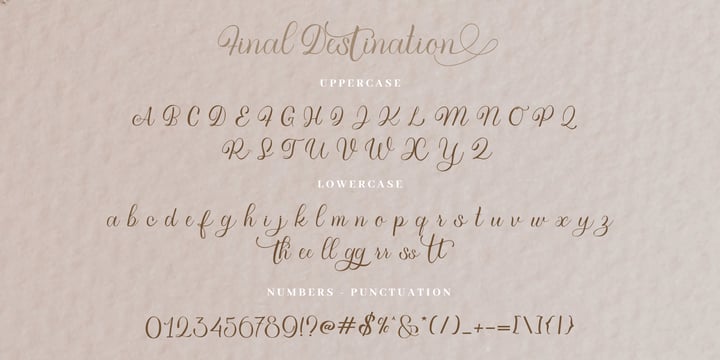 Final Destination
UPPERCASE
A B C D E F G H I J K L M N O P Q
R S T U V W X Y Z
LOWERCASE
a b c d e f g h i j k l m n o p q r s t u v w x y z
th ee ll gg rr ss tt
NUMBERS - PUNCTUATION
0123456789!?@#$%^&*(/)_+-=[\]{|}